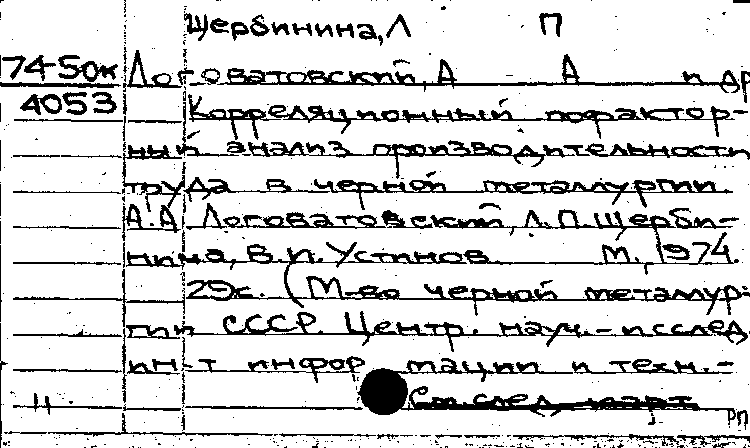 Щербинина, Л П
74-50к Логоватовский, А А и др
4053 Корреляционный пофактор-
ный анализ производительности
труда в черной металлургии.
А.А Логоватовский, Л.П.Щерби-
нина, В.И.Устинов. М., 1974.
29с. (М-во черной металлур-
гии СССР. Центр. науч.-исслед
ин-т информации и техн.-
11. См след. карт.
РП